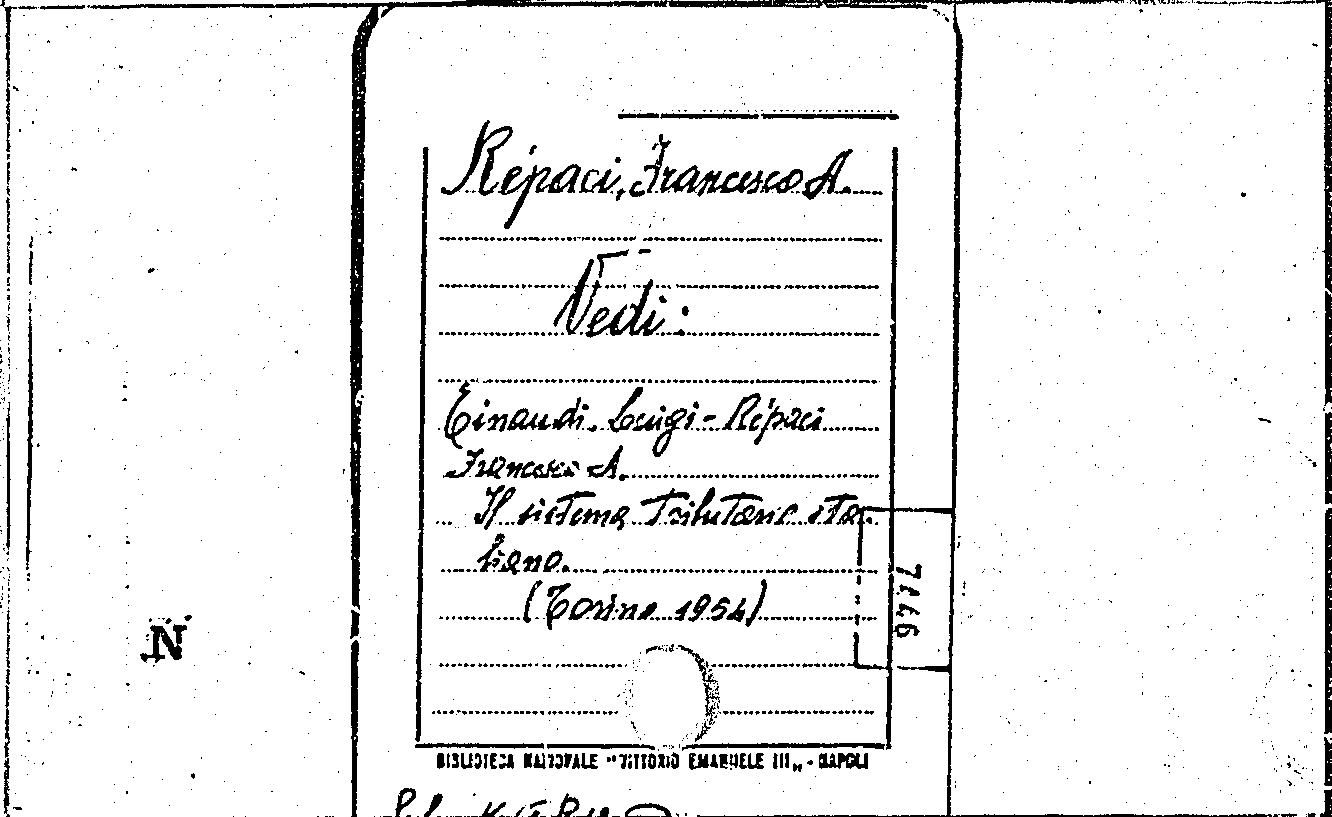 Répaci, Francesco A.
Vedi:
Einaudi, Luigi - Répaci
Francesco A.
Il sistema tributario ita-
liano.
(Torino 1954)
N
BIBLIOTECA NAZIONALE "VITTORIO EMANUELE III„ - NAPOLI